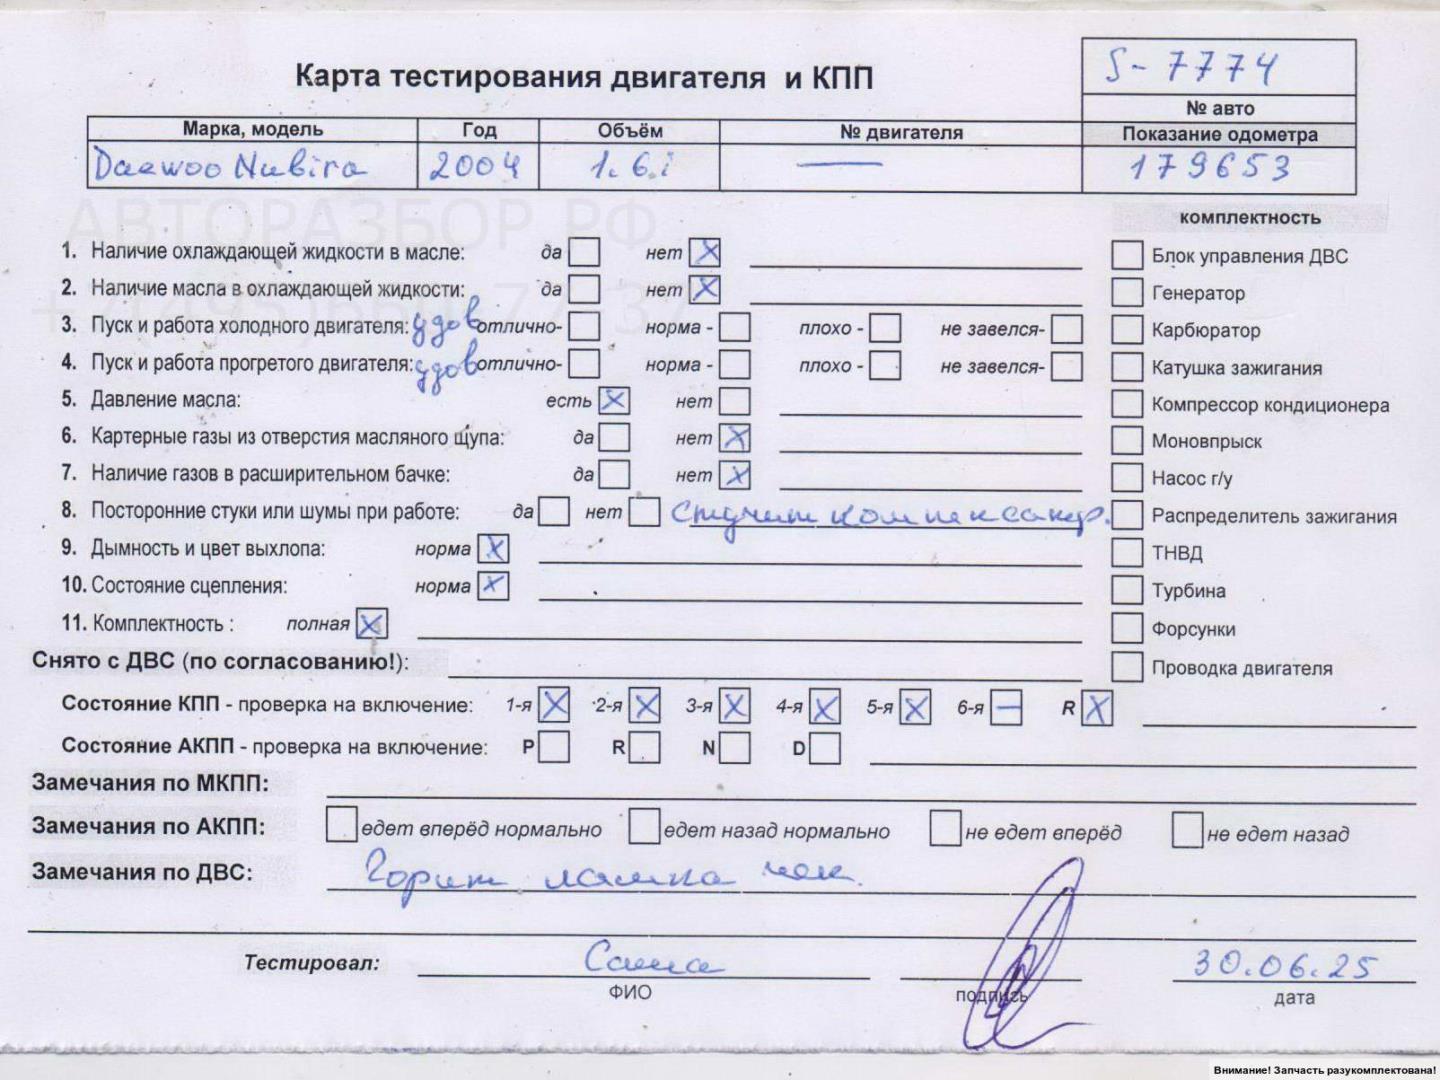 S-7774
Карта тестирования двигателя и КПП
№ авто
Марка, модель Год Объём № двигателя Показание одометра
Daewoo Nubira 2004 1.6i — 179653
АВТОРАЗБОР.РФ
комплектность
1. Наличие охлаждающей жидкости в масле: да нет X Блок управления ДВС
2. Наличие масла в охлаждающей жидкости: да нет X Генератор
3. Пуск и работа холодного двигателя: удов отлично- норма - плохо - не завелся- Карбюратор
4. Пуск и работа прогретого двигателя: удов отлично- норма - плохо - не завелся- Катушка зажигания
5. Давление масла: есть X нет Компрессор кондиционера
6. Картерные газы из отверстия масляного щупа: да нет X Моновпрыск
7. Наличие газов в расширительном бачке: да нет X Насос г/у
8. Посторонние стуки или шумы при работе: да нет Стучит компенсатор. Распределитель зажигания
9. Дымность и цвет выхлопа: норма X ТНВД
10. Состояние сцепления: норма X Турбина
11. Комплектность : полная X Форсунки
Снято с ДВС (по согласованию!): Проводка двигателя
Состояние КПП - проверка на включение: 1-я X 2-я X 3-я X 4-я X 5-я X 6-я — R X
Состояние АКПП - проверка на включение: P R N D
Замечания по МКПП:
Замечания по АКПП: едет вперёд нормально едет назад нормально не едет вперёд не едет назад
Замечания по ДВС: Горит лампа чек.
Тестировал: Саша 30.06.25
ФИО подпись дата
Внимание! Запчасть разукомплектована!